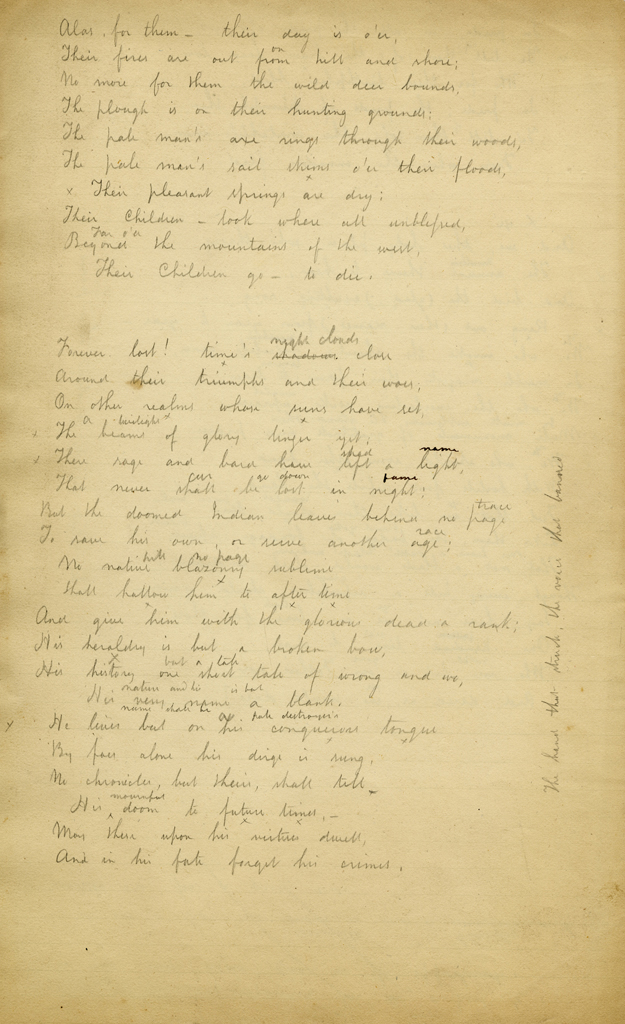 Alas, for them – their day is o'er,
on
Their fires are out from hill and shore;
No more for them the wild deer bounds,
The plough is on their hunting grounds;
The pale man's axe rings through their woods,
The pale man's sail skims o'er their floods,
x Their pleasant springs are dry;
Their Children – look where all unblessed,
Far o'er
Beyond the mountains of the west,
Their Children go – to die.
night clouds
Forever lost! time's shadows close
Around their triumphs and their woes;
On other realms whose suns have set,
A twilight
x The beams of glory linger yet;
shed name
x There sage and bard have left a light,
eer go down fame
That never shall be lost in night;
trace
But the doomed Indian leaves behind no page
race
To save his own, or serve another age;
with no page
No native blazonry sublime
Shall hallow them to after time
And give him with the glorious dead a rank;
His heraldry is but a broken bow,
but a tale
His history one short tale of wrong and wo,
nature and is but
His very name a blank.
name shall be on pale destroyer's
x He lives but on his conquerors tongue
By foes alone his dirge is sung,
No chronicles, but theirs, shall tell
mournful
His doom to future times, –
May these upon his virtues dwell,
And in his fate forget his crimes.
The hand that the voice that banned